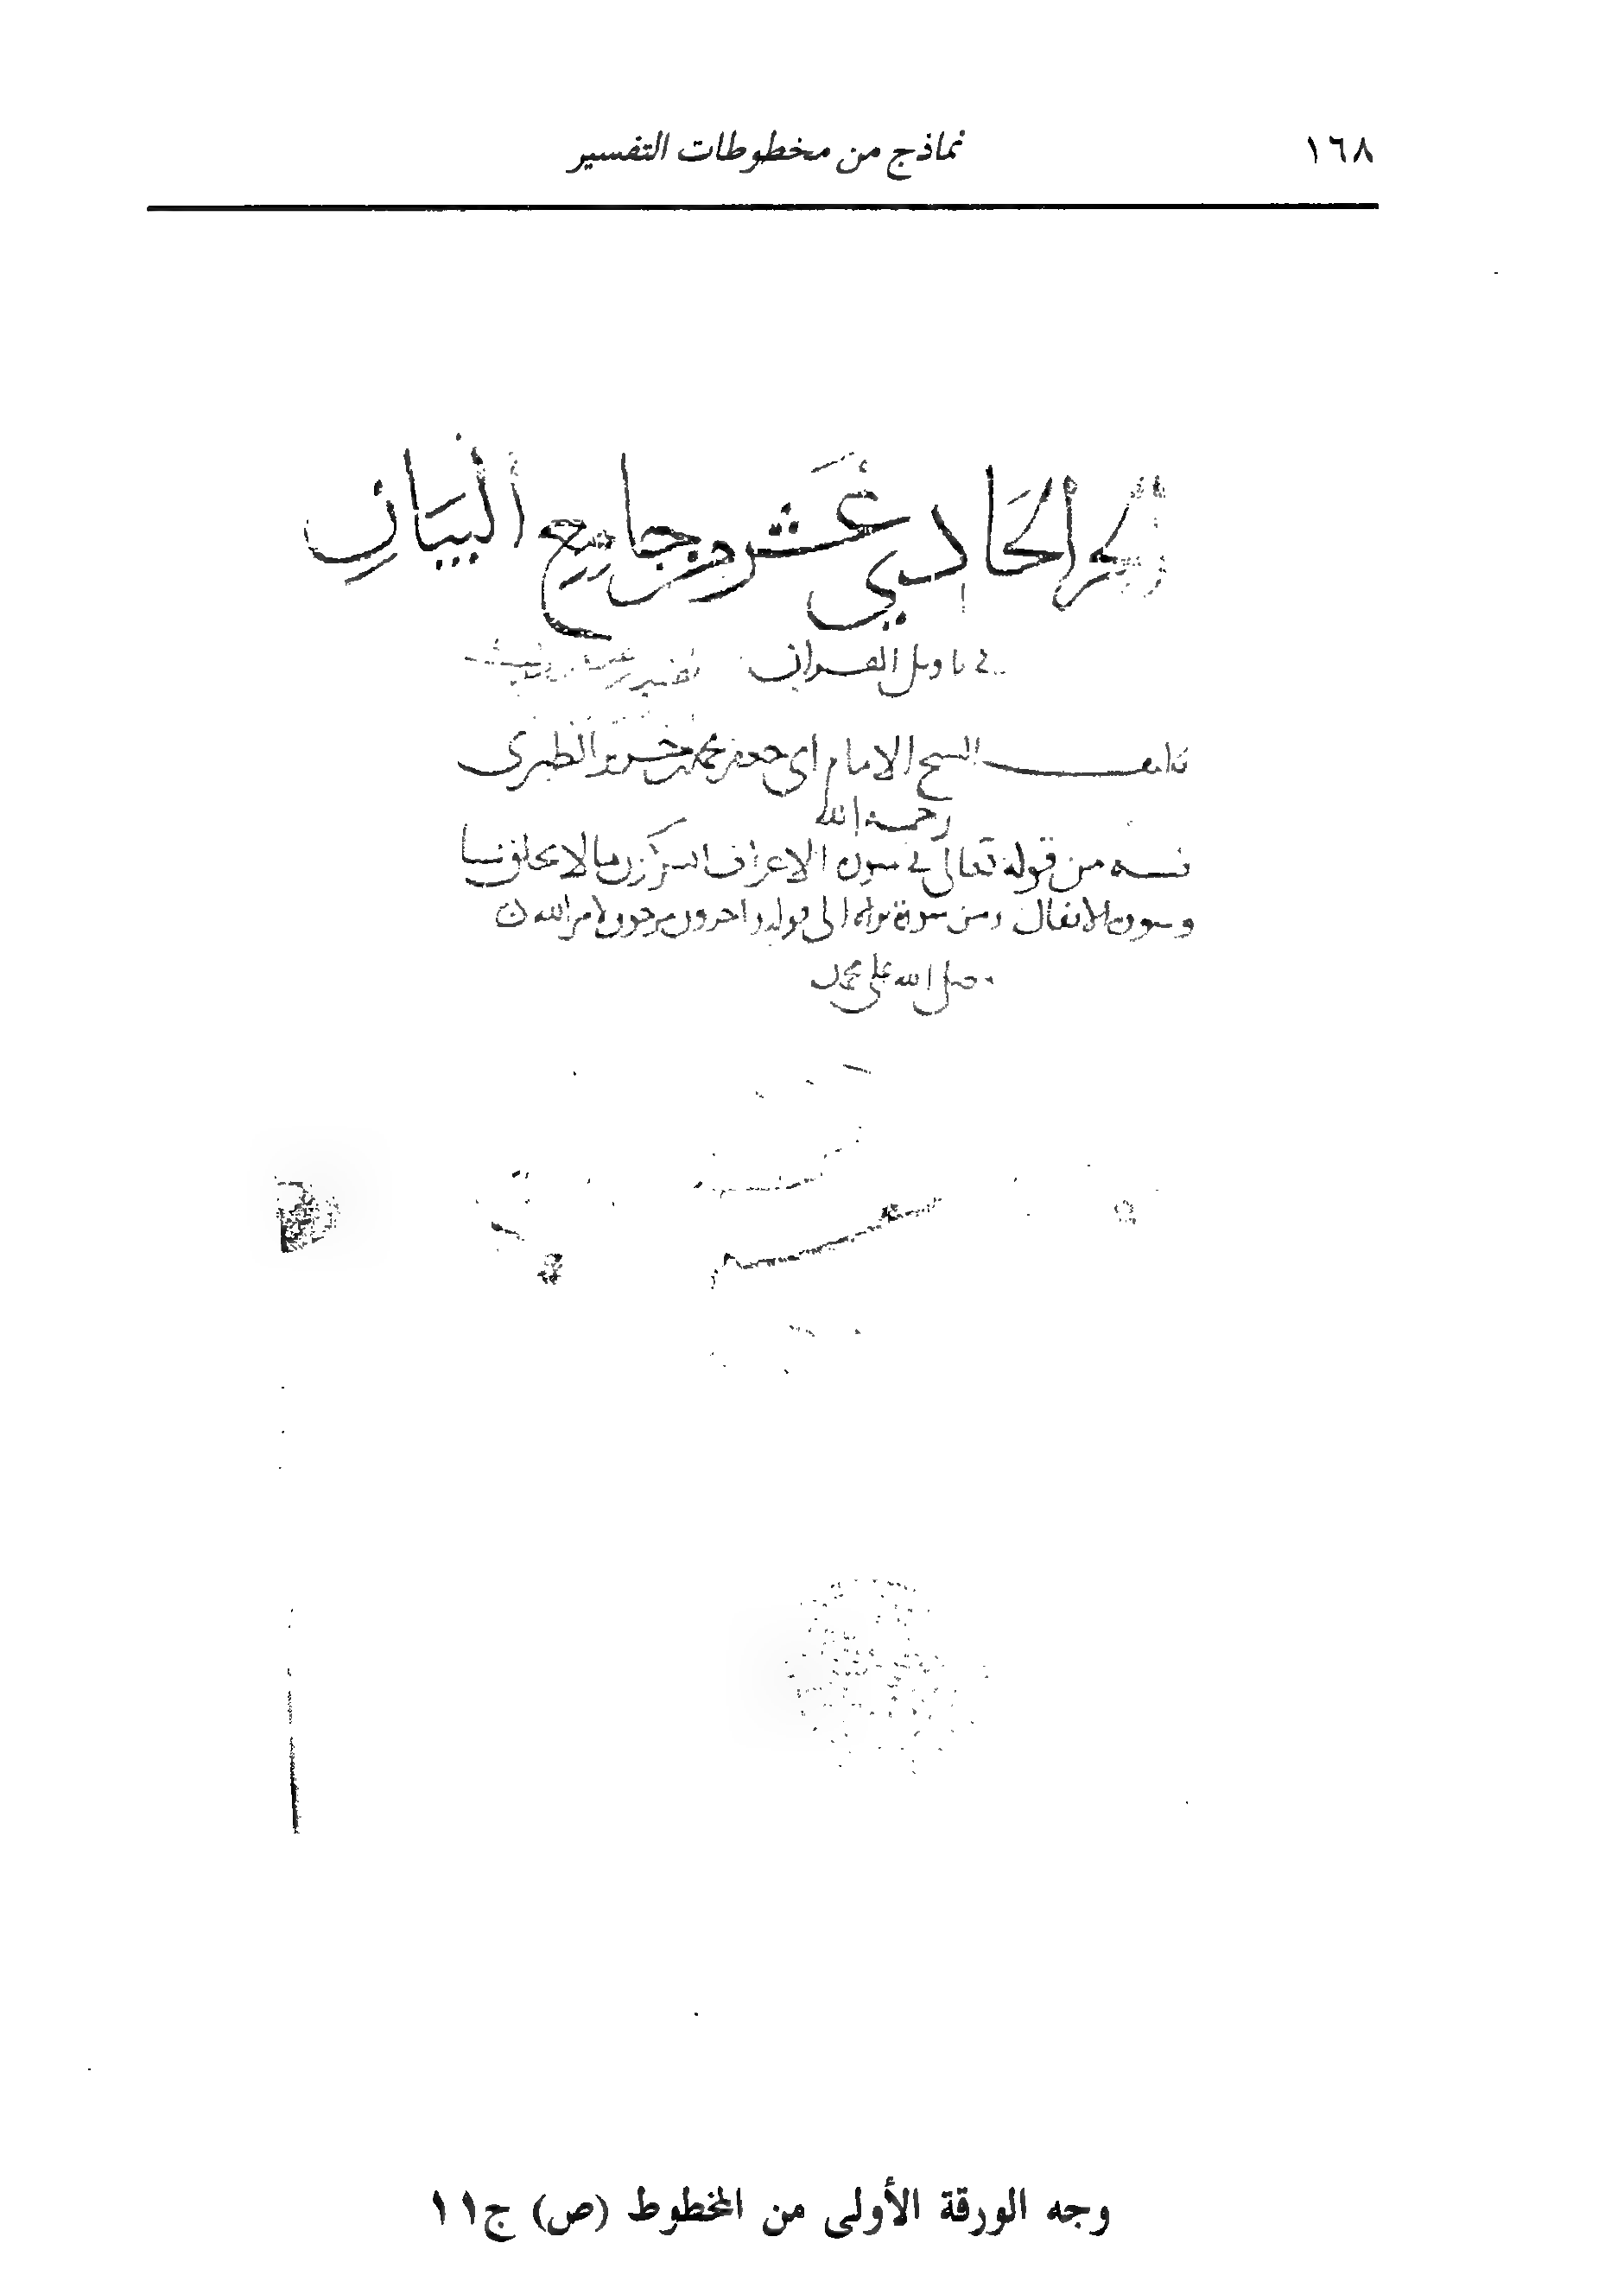 ١٦٨ نماذج من مخطوطات التفسير
الجز الحَادي عَشر من جامِع البيَانِ
في تاويل القران
تاليف الشيخ الامام ابي جعفر محمد بن جرير الطبري
رحمة الله
فيه من قوله تعالى في سورة الاعراف ايشركون ما لا يخلق شيا
وسورة الانفال ومن سورة براة الى قوله واخرون مرجون لامر الله
وصلى الله على محمد
وجه الورقة الأولى من المخطوط (ص) ج١١